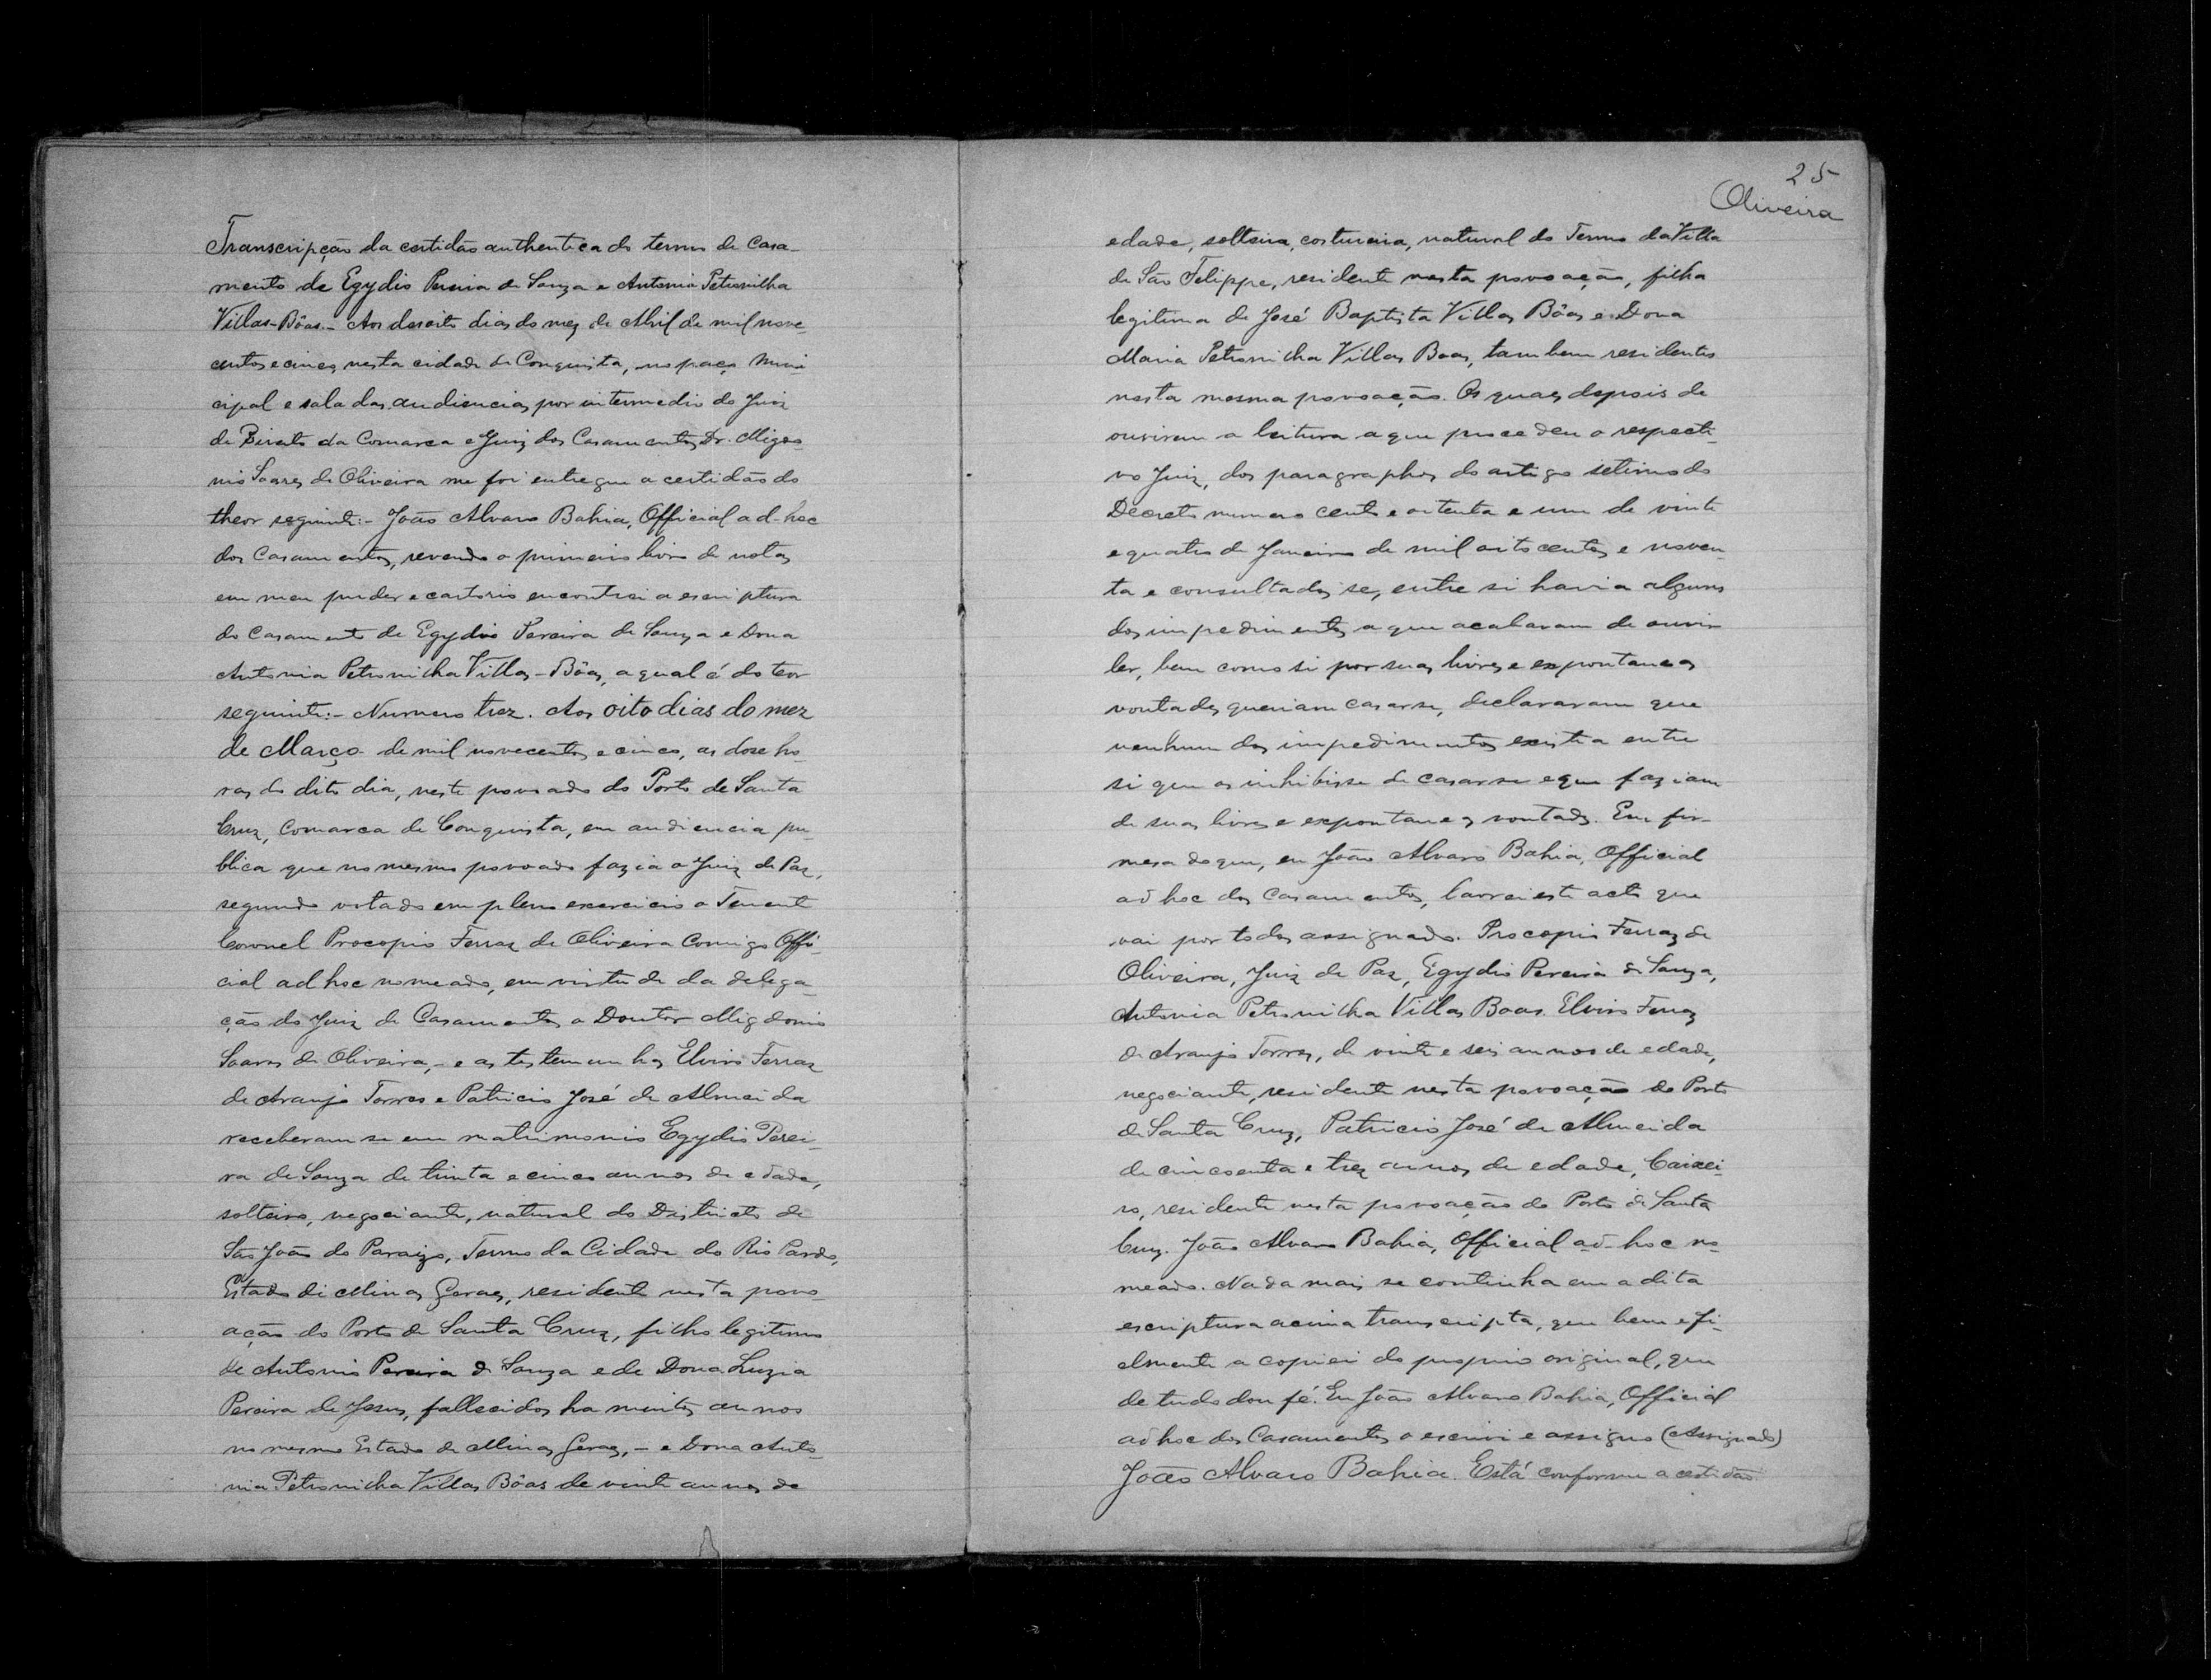 Transcripção da certidão authentica do termo de Casa-
mento de Egydio Pereira de Souza e Antonia Petronilha
Villas-Bôas.- Aos desoito dias do mez de Abril de mil nove-
centos e cinco, nesta cidade de Conquista, no paço Muni-
cipal e sala das audiencias, por intermedio do Juiz
de Direito da Comarca e Juiz dos Casamentos, Dr. Migdo-
nio Soares de Oliveira me foi entregue a certidão do
theor seguinte:- João Alvaro Bahia, Official ad-hoc
dos Casamentos, revendo o primeiro livro de notas
em meu puder e cartorio encontrei a escriptura
do Casamento de Egydio Pereira de Souza e Dona
Antonia Petronilha Villas-Bôas, a qual é do teor
seguinte:- Numero trez. Aos oito dias do mez
de Março de mil novecentos e cinco, as dose ho-
ras do dito dia, neste povoado do Porto de Santa
Cruz, Comarca de Conquista, em audiencia pu-
blica que no mesmo povoado fazia o Juiz de Paz,
segundo votado em pleno exercicio o Tenente
Coronel Procopio Ferraz de Oliveira Comigo Offi-
cial ad hoc nomeado, em virtude da delega-
ção do Juiz de Casamentos o Doutor Migdonio
Soares de Oliveira,- e as testemunhas Elvino Ferraz
de Araujo Torres e Patricio José de Almeida
receberam se em matrimonio Egydio Perei-
ra de Souza de trinta e cinco annos de edade,
solteiro, negociante, natural do Districto de
São João do Paraizo, Termo da Cidade do Rio Pardo,
Estado di Minas Geraes, residente nesta povo-
ação do Porto de Santa Cruz, filho legitimo
de Antonio Pereira de Souza e de Dona Luzia
Pereira de Jesus, fallecidos ha muitos annos
no mesmo Estado de Minas Geraes, - e Dona Anto-
nia Petronilha Villas Bôas de vinte annos de
25
Oliveira
edade, solteira, costureira, natural do Termo da Villa
de São Felippe, residente nesta povoação, filha
legitima de José Baptista Villas Bôas e Dona
Maria Petronilha Villas Boas, tambem residentes
nesta mesma povoação. Os quaes depois de
ouvirem a leitura a que procedeu o respecti-
vo Juiz, dos paragraphos do artigo setimo do
Decreto numero cento e oitenta e um de vinte
e quatro de Janeiro de mil oitocentos e noven-
ta e consultados se, entre si havia alguns
dos impedimentos a que acabavam de ouvir
ler, bem como si por suas livres e expontaneas
vontades queriam casarse, declararam que
nenhum dos impedimentos existia entre
si que os inhibisse de casarse e que faziam
de suas livres e expontaneas vontades. Em fir-
mesa do que, eu João Alvaro Bahia, Official
ad hoc dos Casamentos, lavrei este acto que
vai por todos assignado. Procopio Ferraz de
Oliveira, Juiz de Paz, Egydio Pereira de Souza,
Antonia Petronilha Villas Boas. Elvino Ferraz
de Araujo Torres, de vinte e seis annos de edade,
negociante, residente nesta povoação do Porto
de Santa Cruz, Patricio José de Almeida
de cincoenta e trez annos de edade, Caixei-
ro, residente nesta povoação do Porto de Santa
Cruz. João Alvaro Bahia, Official ad-hoc no-
meado. Nada mais se continha em a dita
escriptura acima transcripta, que bem e fi-
elmente a copiei do proprio original, que
de tudo dou fé. Eu João Alvaro Bahia, Official
ad hoc dos Casamentos o escrivi e assigno (Assignado)
João Alvaro Bahia. Está conforme a certidão